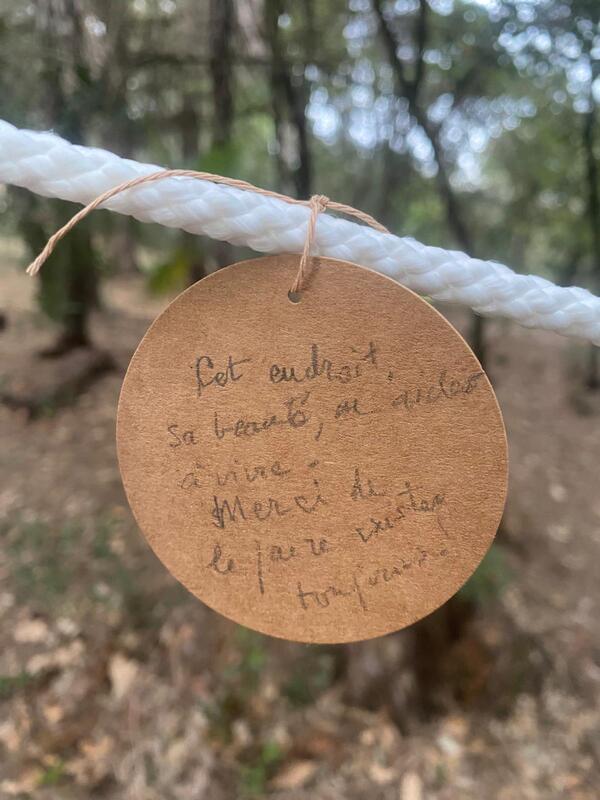 Cet endroit,
sa beauté, m'aident
à vivre.
Merci de
le faire exister
toujours.